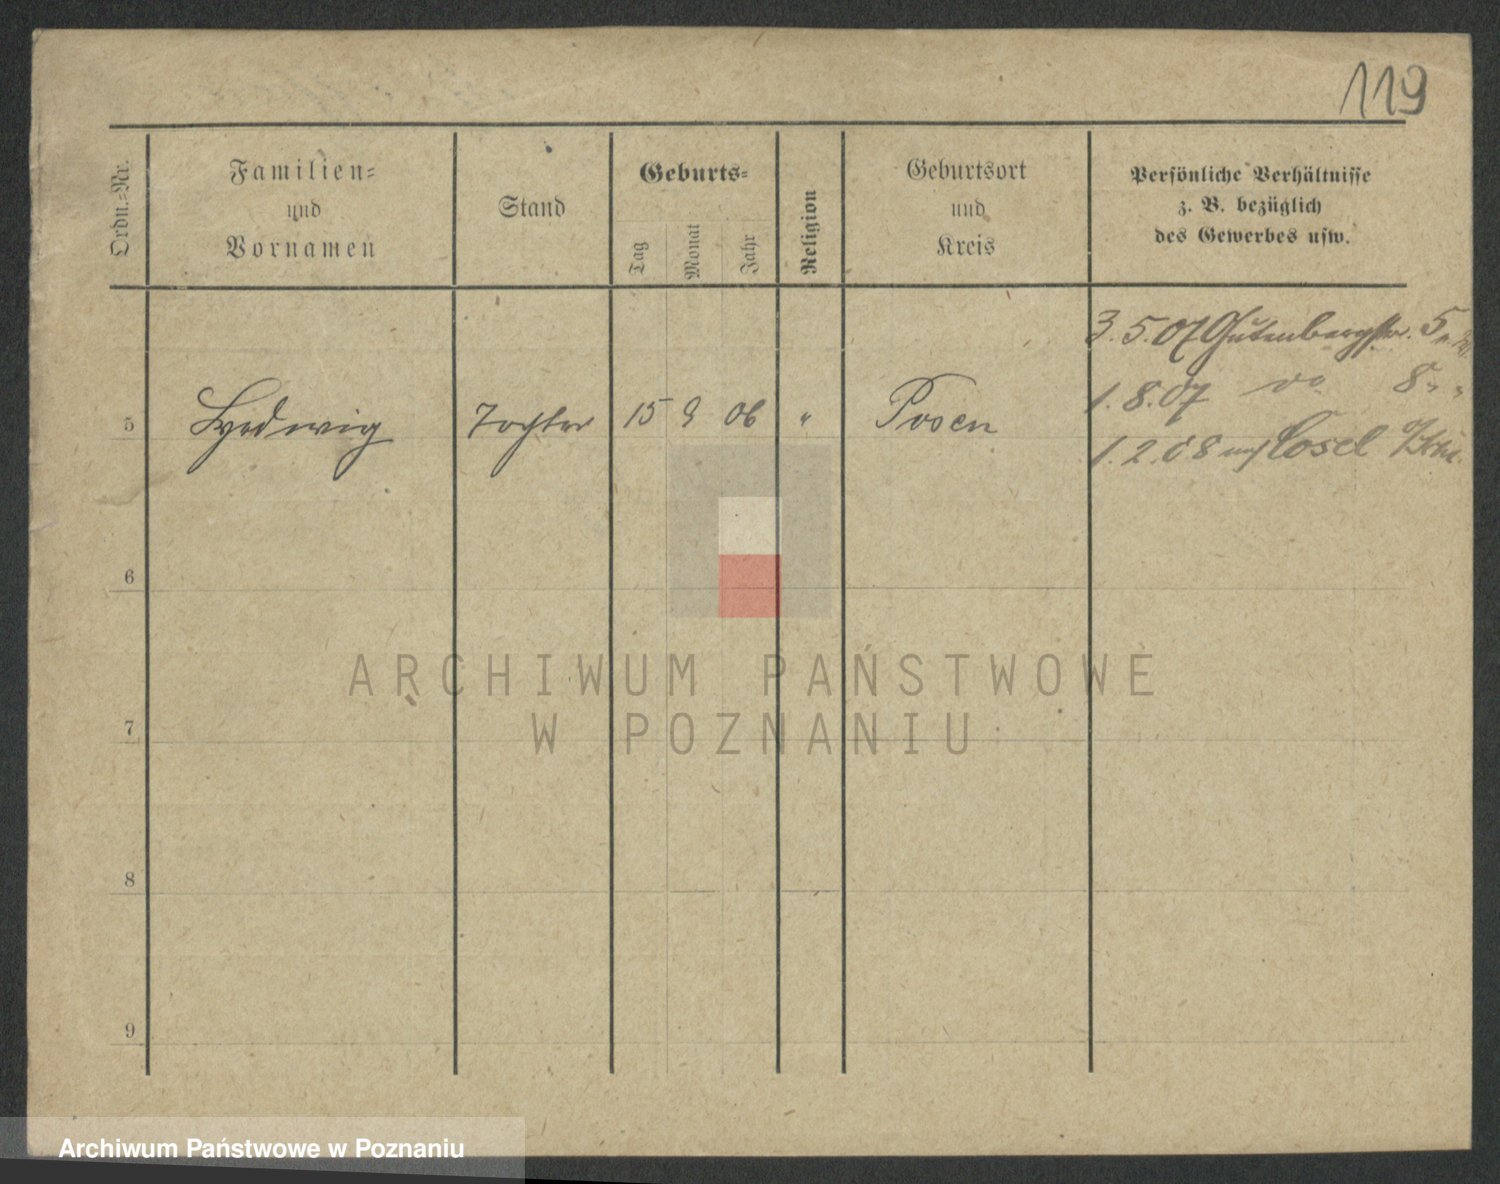 119
Ordn.-Nr.
Familien=
und
Vornamen
Stand
Geburts=
Tag
Monat
Jahr
Religion
Geburtsort
und
Kreis
Persönliche Verhältnisse
z. B. bezüglich
des Gewerbes usw.
3.5.07 Gutenbergstr. 5
1.8.07 do 8 " "
5 Hedwig Tochter 15 9 06 " Posen
1.2.08 Cosel
6
7
8
9
ARCHIWUM PAŃSTWOWE
W POZNANIU
Archiwum Państwowe w Poznaniu